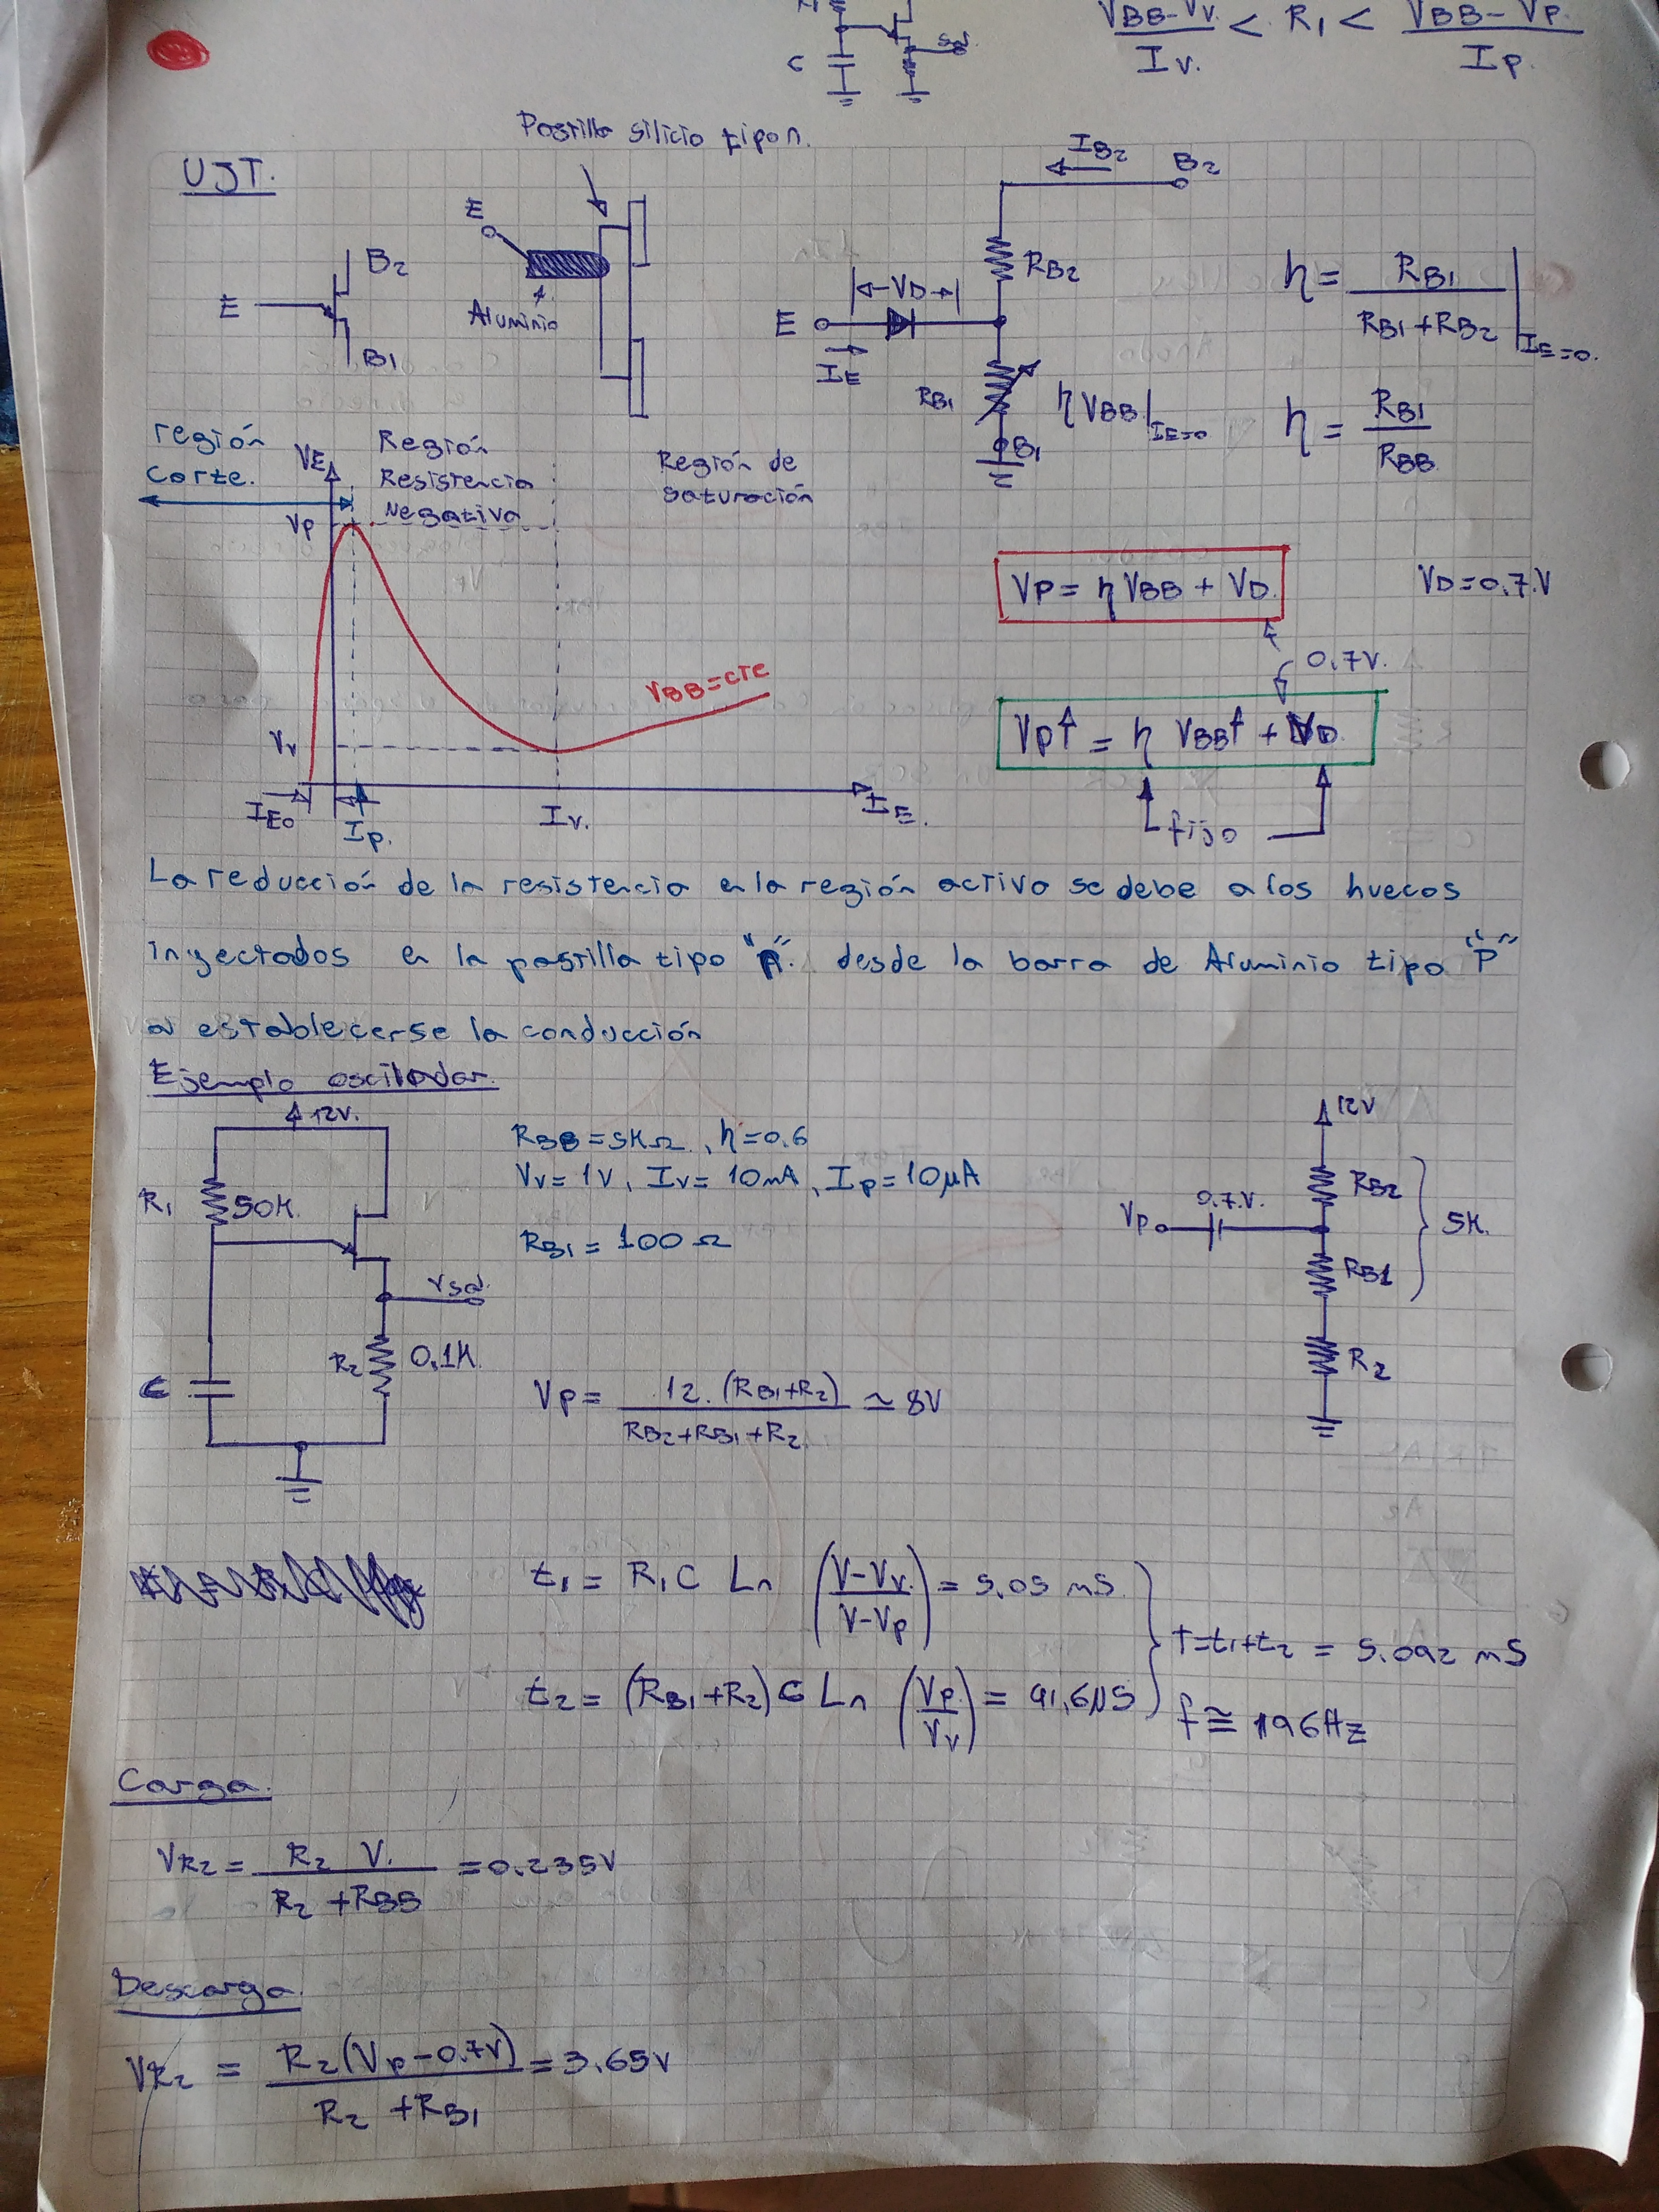 VBB-Vv / Iv. < R1 < VBB-Vp. / Ip.
C
Pastilla silicio tipo n.
UJT.
E
B2
B1
E
Aluminio
IB2
B2
RB2
VD
E
IE
RB1
ηVBB|IE=0
B1
η = RB1 / RB1+RB2 | IE=0.
η = RB1 / RBB
región
corte.
VE
Región
Resistencia
Negativa
Región de
saturación
Vp
Vv
VBB=cte
IEo
Ip.
Iv.
IE.
Vp = ηVBB + VD.
VD=0.7.V
0.7V.
Vp↑ = η VBB↑ + VD.
fijo
La reducción de la resistencia en la región activa se debe a los huecos
inyectados en la pastilla tipo "n". desde la barra de Aluminio tipo "P"
al establecerse la conducción
Ejemplo oscilador.
12V.
R1
50K.
C
Vsal
R2
0,1K.
RBB = 5KΩ, η=0.6
Vv= 1V, Iv= 10mA, Ip= 10μA
RB1 = 100 Ω
Vp= 12.(RB1+R2) / RB2+RB1+R2 ≃ 8V
12V
RB2
0.7.V.
Vp
5K.
RB1
R2
t1 = R1C Ln (V-Vv / V-Vp) = 5.05 mS
t2 = (RB1+R2)C Ln (Vp / Vv) = 41,6μS
T=t1+t2 = 5.092 mS
f ≅ 196Hz
Carga.
VR2 = R2 V. / R2 +RBB = 0.235V
Descarga.
VR2 = R2(Vp-0.7V) / R2 +RB1 = 3.65V